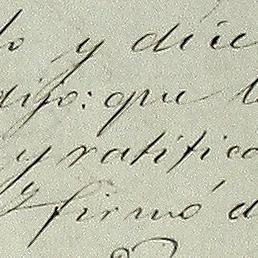 y
dijo: que
y ratific
y firmó d